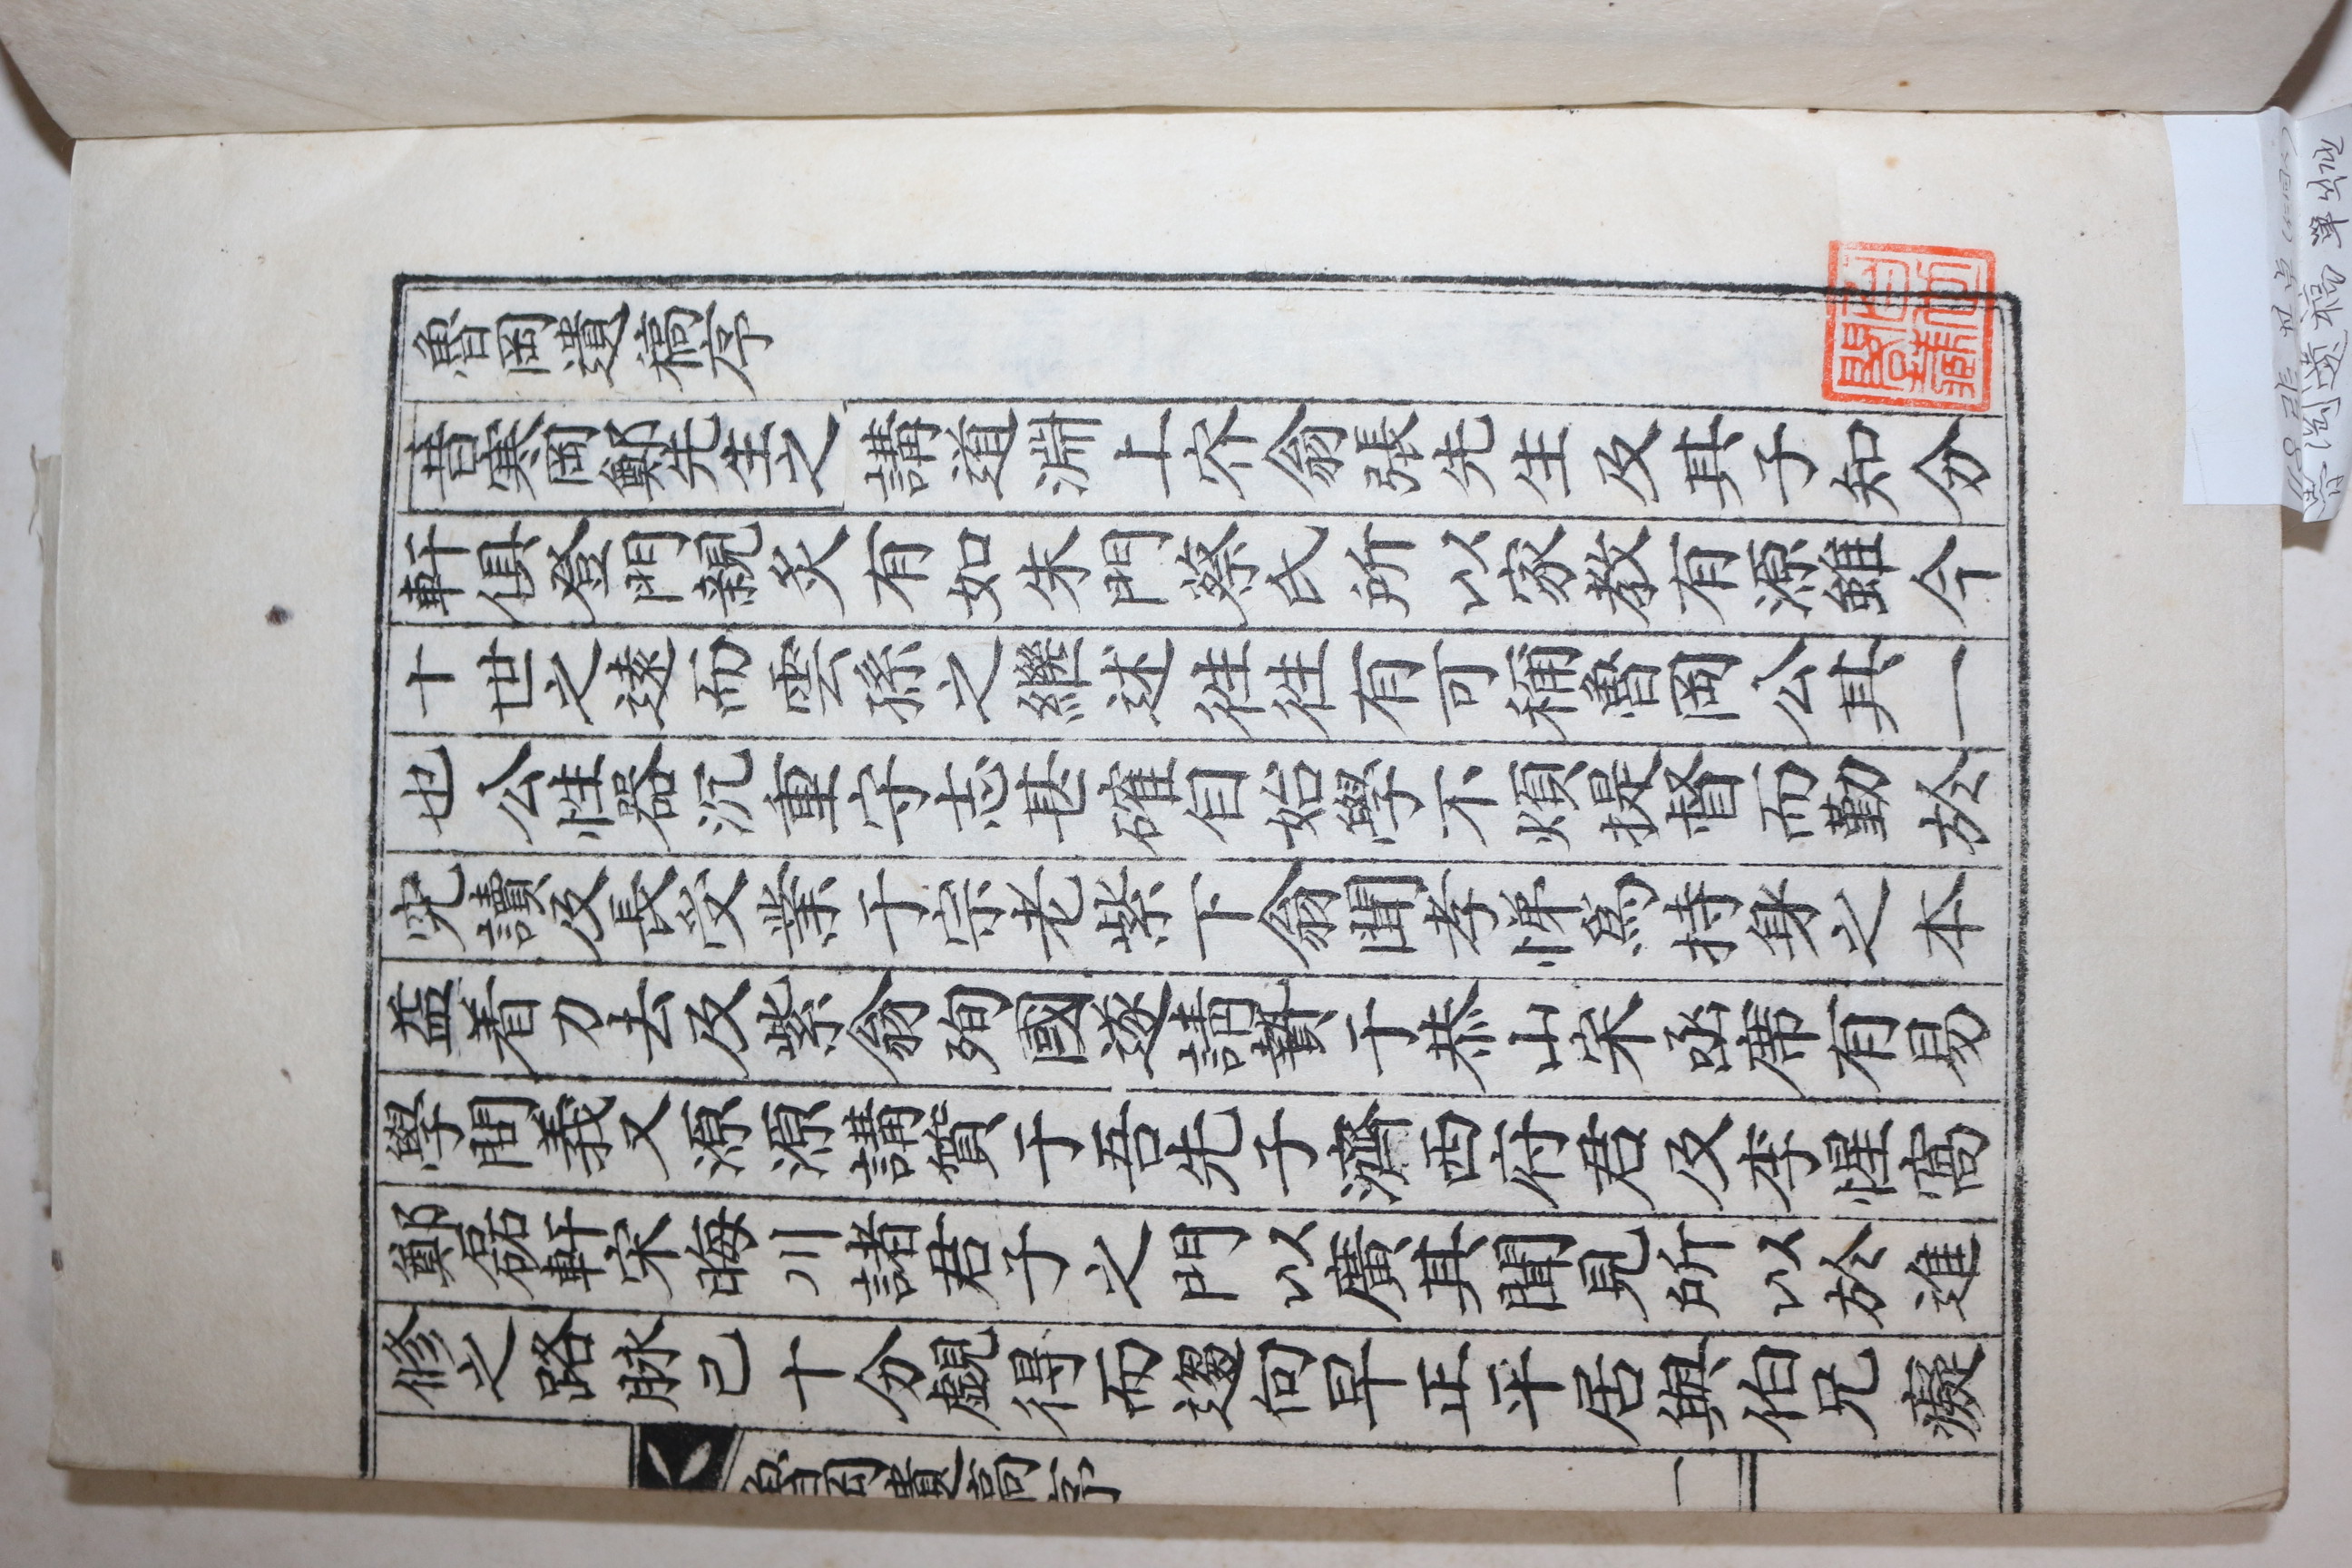 魯岡遺稿序
昔寒岡鄭先生之講道淵上㝏翁張先生及其子知分
軒俱登門親炙有如朱門蔡氏所以家教有源雖今
十世之遠而雲孫之繼述徃徃有可稱魯岡公其一
也公性器沉重守志甚確自始學不煩提督而勤於
究讀及長受業于宗老紫下翁聞孝悌爲持身之本
益着力去及紫翁殉國遂請贄于恭山宋函席有易
學問義又源源講質于吾先子濟西府君及李惺窩
鄭磊軒宋晦川諸君子之門以廣其聞見所以於進
修之路脉已十分覷得而趨向早正平居與伯兄癡
魯岡遺稿序
一
魯岡遺稿